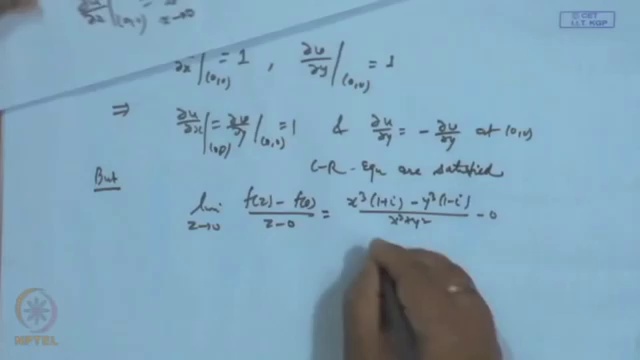 © CET
I.I.T. KGP
∂u/∂x |(0,0) z→0
∂x |(0,0) = 1 , ∂v/∂y |(0,0) = 1
⇒ ∂u/∂x |(0,0) = ∂v/∂y |(0,0) = 1 & ∂u/∂y = - ∂v/∂y at (0,0)
C-R- Equ are satisfied
But
lim z→0 f(z) - f(0) / z-0 = x³(1+i) - y³(1-i) / x²+y² - 0
NPTEL